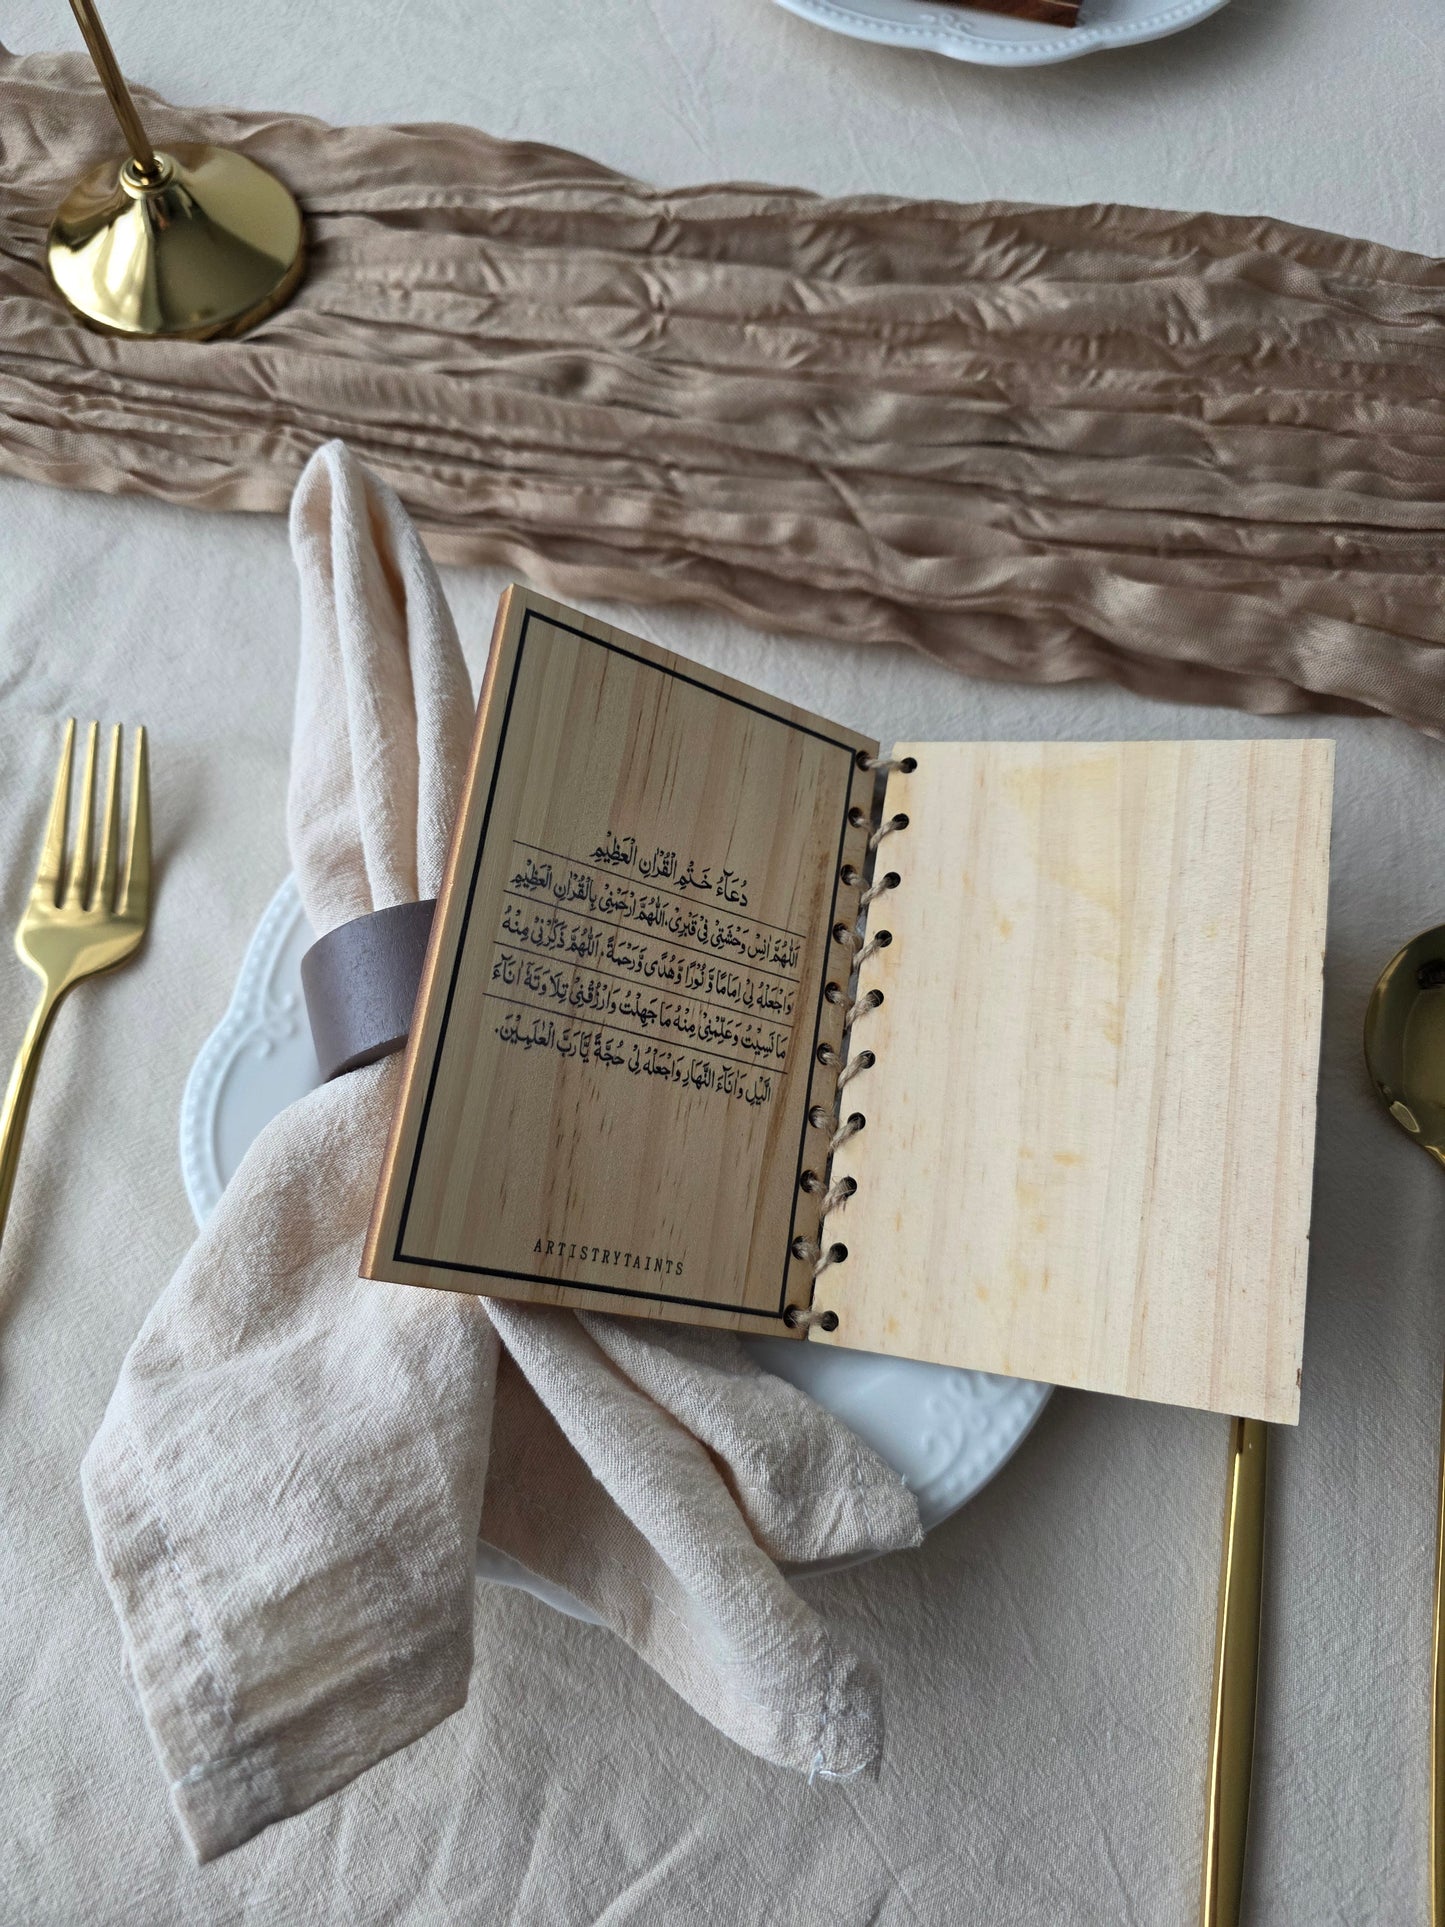 دُعَآءُ خَتْمِ الْقُرْاٰنِ الْعَظِيْمِ
اَللّٰهُمَّ اٰنِسْ وَحْشَتِيْ فِيْ قَبْرِيْ. اَللّٰهُمَّ ارْحَمْنِيْ بِالْقُرْاٰنِ الْعَظِيْمِ
وَاجْعَلْهُ لِيْ اِمَامًا وَّ نُوْرًا وَّهُدًى وَّرَحْمَةً. اَللّٰهُمَّ ذَكِّرْنِيْ مِنْهُ
مَا نَسِيْتُ وَعَلِّمْنِيْ مِنْهُ مَا جَهِلْتُ وَارْزُقْنِيْ تِلَاوَتَهٗ اٰنَآءَ
الَّيْلِ وَاٰنَآءَ النَّهَارِ وَاجْعَلْهُ لِيْ حُجَّةً يَّا رَبَّ الْعٰلَمِيْنَ.
ARTISTRYTAINTS